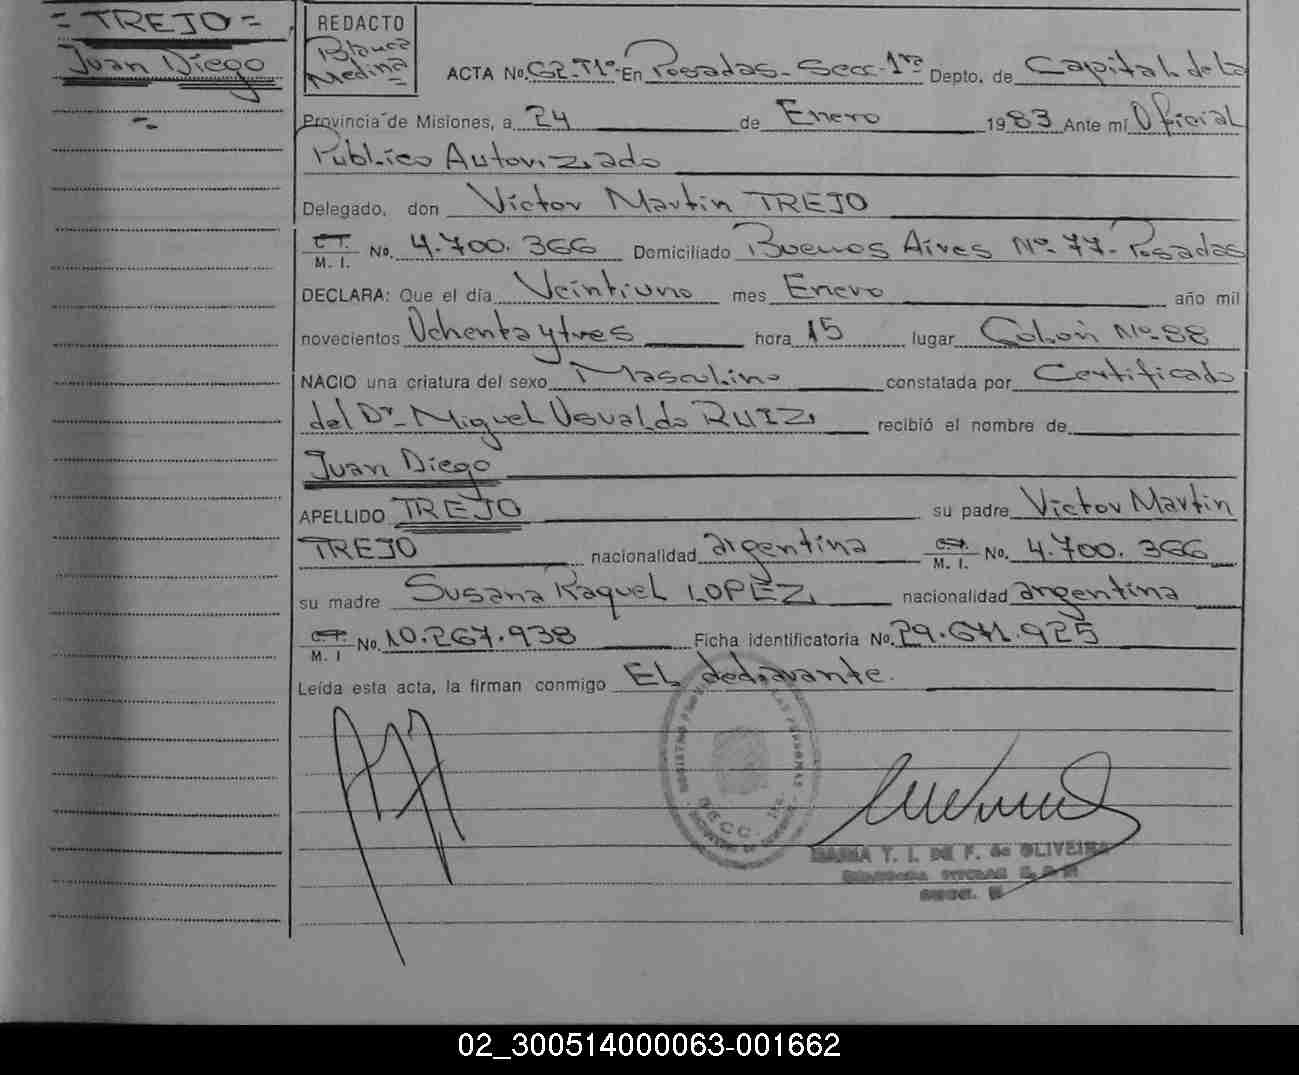 = TREJO =
Juan Diego
REDACTO
Blanca
Medina
ACTA No. 62. T1º En Posadas - Secc. 1ra Depto. de Capital de la
Provincia de Misiones, a 24 de Enero 1983 Ante mí Oficial
Publico Autorizado
Delegado, don Victor Martin TREJO
C.I. M. I. No. 4.700.366 Domiciliado Buenos Aires Nº 77 - Posadas
DECLARA: Que el día Veintiuno mes Enero año mil
novecientos Ochenta y tres hora 15 lugar Colon Nº 88
NACIO una criatura del sexo Masculino constatada por Certificado
del Dr. Miguel Osvaldo RUIZ recibió el nombre de
Juan Diego
APELLIDO TREJO su padre Victor Martin
TREJO nacionalidad argentina C.I. M. I. No. 4.700.366
su madre Susana Raquel LOPEZ nacionalidad argentina
C.I. M. I No. 10.267.938 Ficha identificatoria No. 29.671.925
Leída esta acta, la firman conmigo El declarante.
SECC. 1a.
MARIA T. I. DE F. de OLIVEIRA
02_300514000063-001662